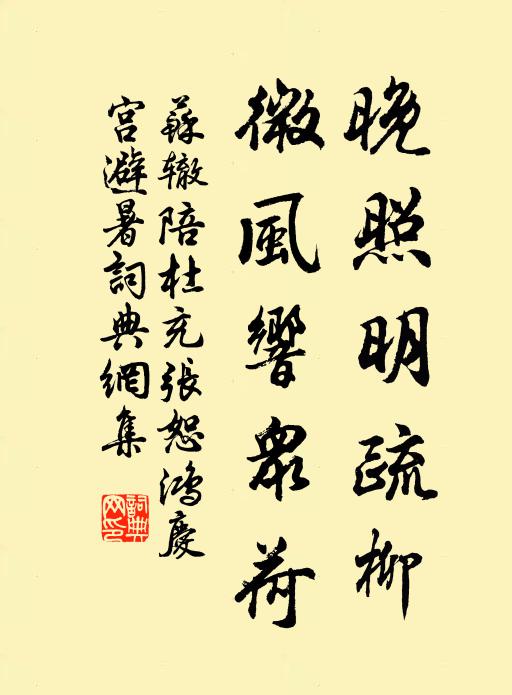 晚照明疏柳
微風響眾荷
蘇辙陪杜充張恕鴻慶
宮避暑詞典網集
詞典
网印